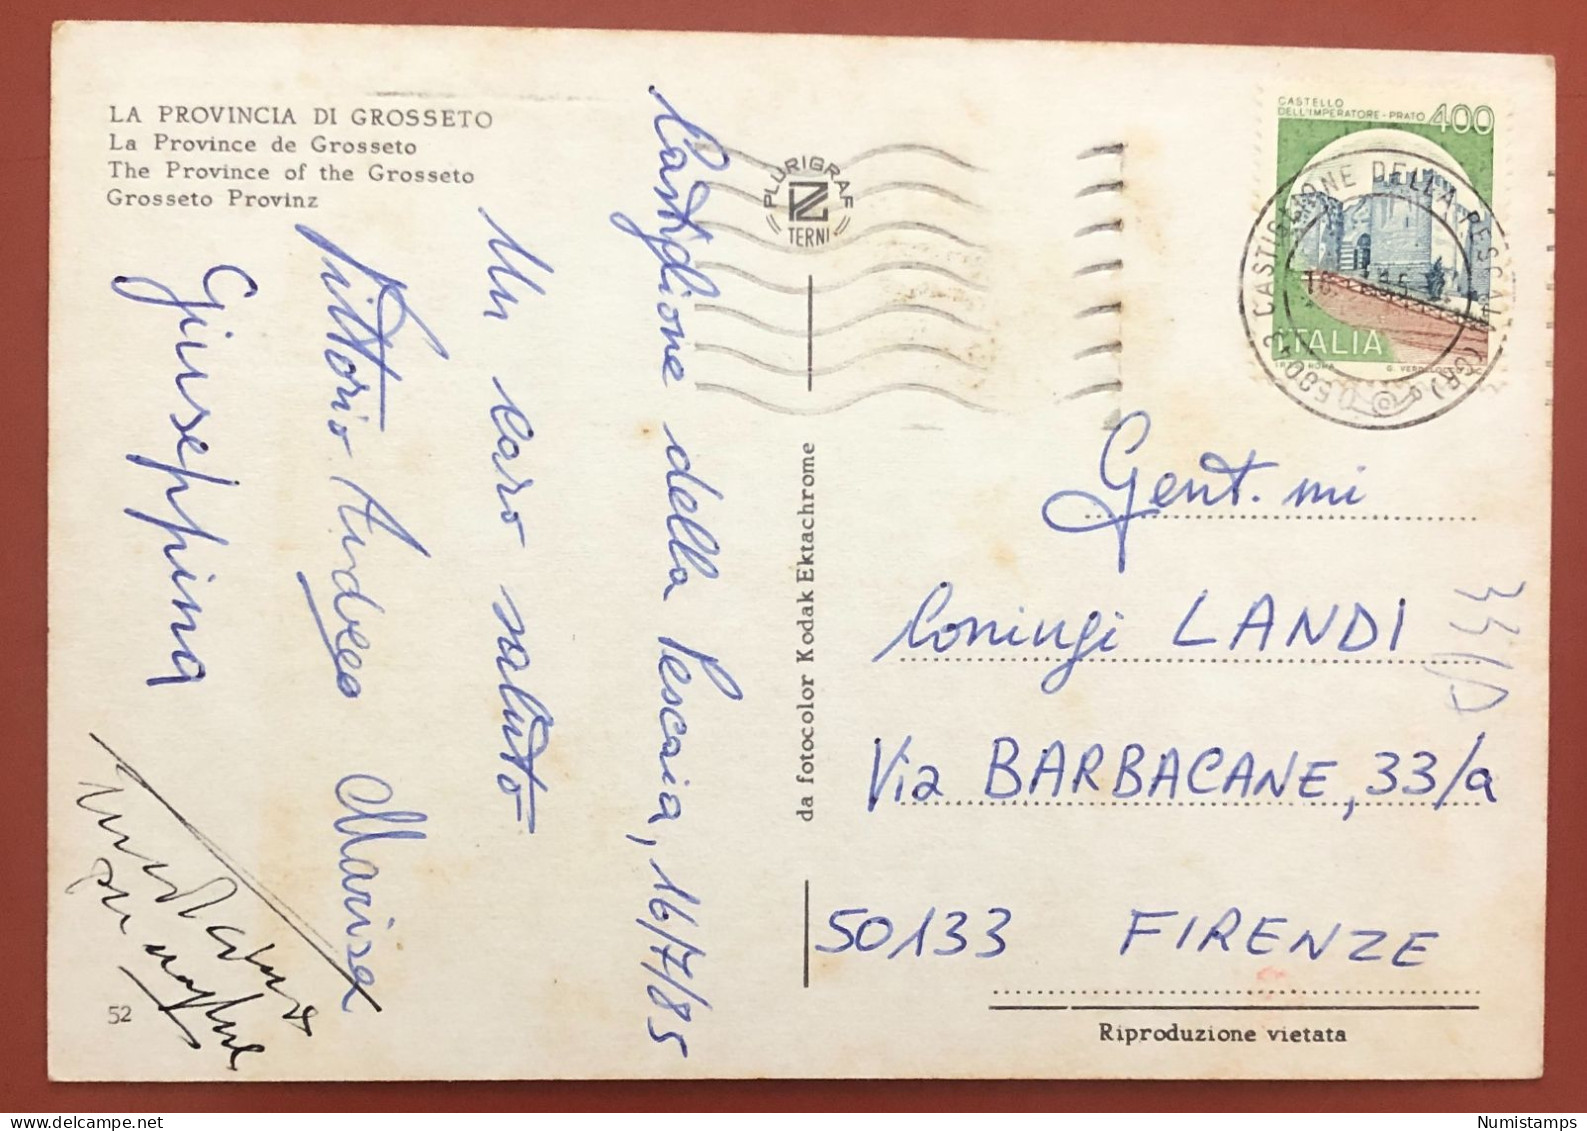 LA PROVINCIA DI GROSSETO
La Province de Grosseto
The Province of the Grosseto
Grosseto Provinz
Castiglione della Pescaia, 16/7/85
Un caro saluto
Vittorio Andrea Marisa
Giuseppina
52
PLURIGRAF
TERNI
da fotocolor Kodak Ektachrome
CASTELLO
DELL'IMPERATORE - PRATO 400
ITALIA
CASTIGLIONE DELLA PESCAIA (GR)
Gent. mi
Coniugi LANDI
Via BARBACANE, 33/a
33/A
50133 FIRENZE
Riproduzione vietata
delcampe.net
Numistamps